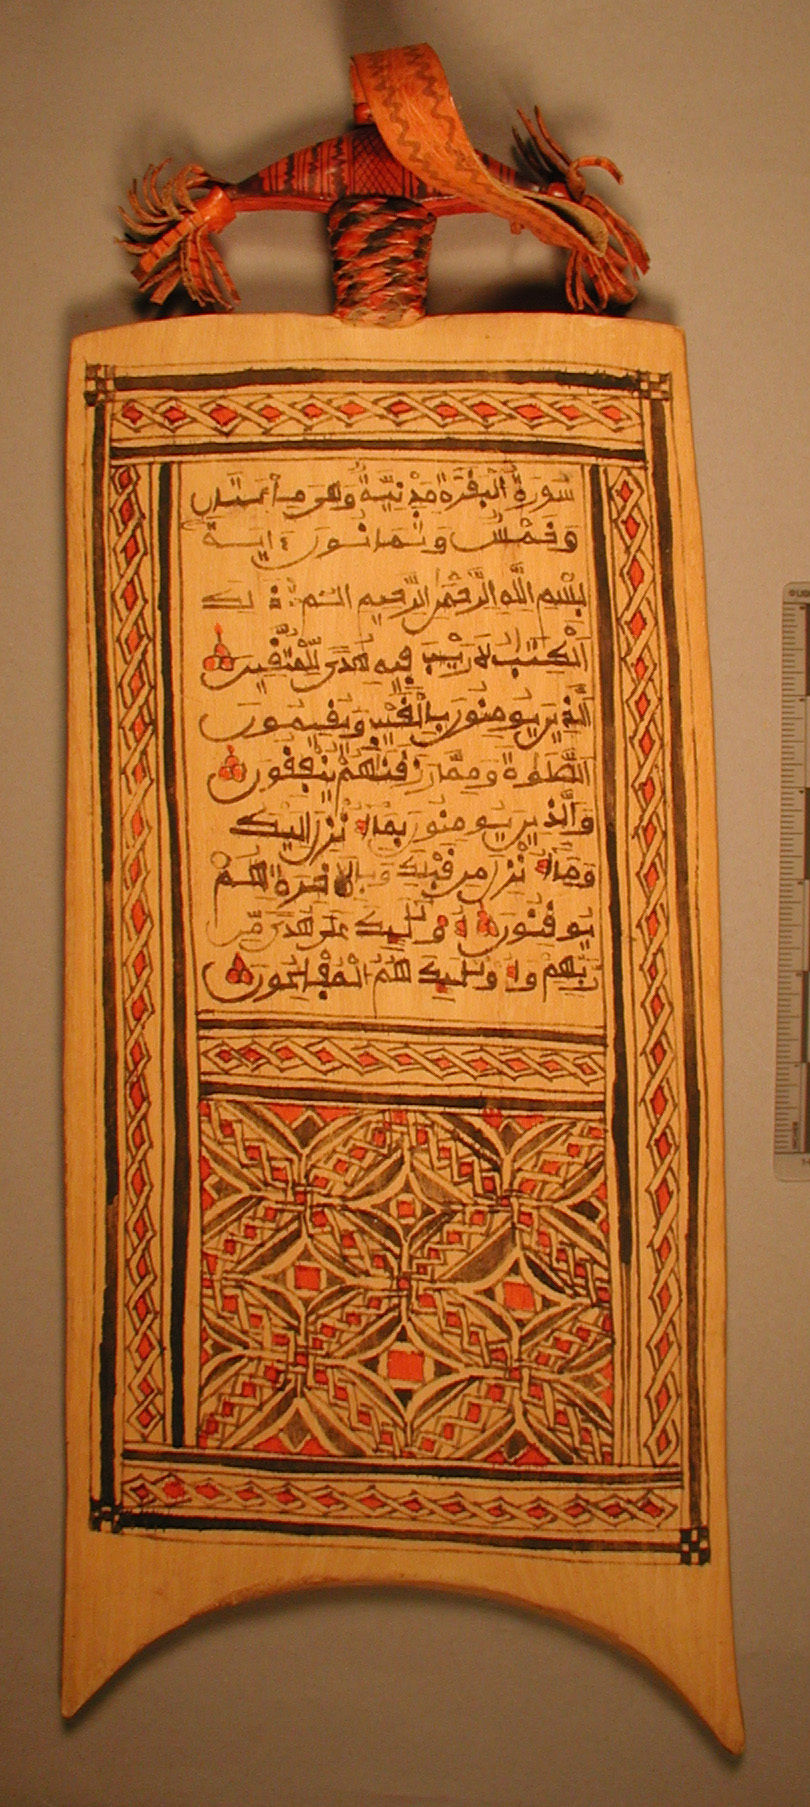 سُورَةُ الْبَقَرَةِ مَدَنِيَّةٌ وَهِيَ مِائَتَانِ
وَخَمْسٌ وَثَمَانُونَ ءَايَـة
بِسْمِ اللَّهِ الرَّحْمَنِ الرَّحِيمِ الم ذَلِكَ
الْكِتَبُ لَا رَيْبَ فِيهِ هُدًى لِّلْمُتَّقِينَ
الَّذِينَ يُومِنُونَ بِالْغَيْبِ وَيُقِيمُونَ
الصَّلَوةَ وَمِمَّا رَزَقْنَهُمْ يُنفِقُونَ
وَالَّذِينَ يُومِنُونَ بِمَا أُنزِلَ إِلَيْكَ
وَمَا أُنزِلَ مِن قَبْلِكَ وَبِالْآخِرَةِ هُمْ
يُوقِنُونَ أُوْلَئِكَ عَلَى هُدًى مِّن
رَّبِّهِمْ وَأُوْلَئِكَ هُمُ الْمُفْلِحُونَ